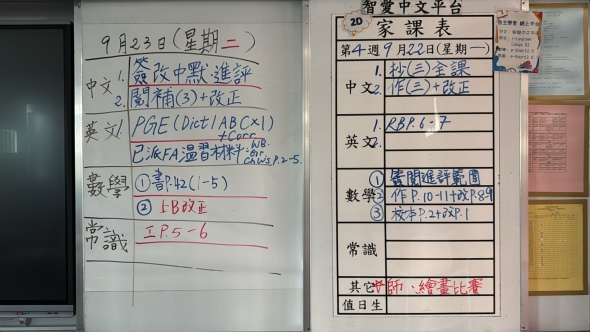 9月23日(星期二)
中文 1. 簽改中默進評
2. 閱補(3)+改正
英文 1. PGE(Dict 1 ABC×1)
+Corr
已派FA温習材料: WB.
Gr
Ch Ws P.2-5.
數學 ① 書P.42(1-5)
② 5B改正
常識 工P.5-6
智愛中文平台
2D 家課表
第4週9月22日(星期一)
中文 1. 抄(三)全課
2. 作(三)+改正
英文 1. RBP.6-7
2.
數學 ① 簽閱進評範圍
② 作P.10-11+改P.8-9
③ 校本P.2+改P.1
常識
其它 師、繪畫比賽
值日生
自主學習 網上平台